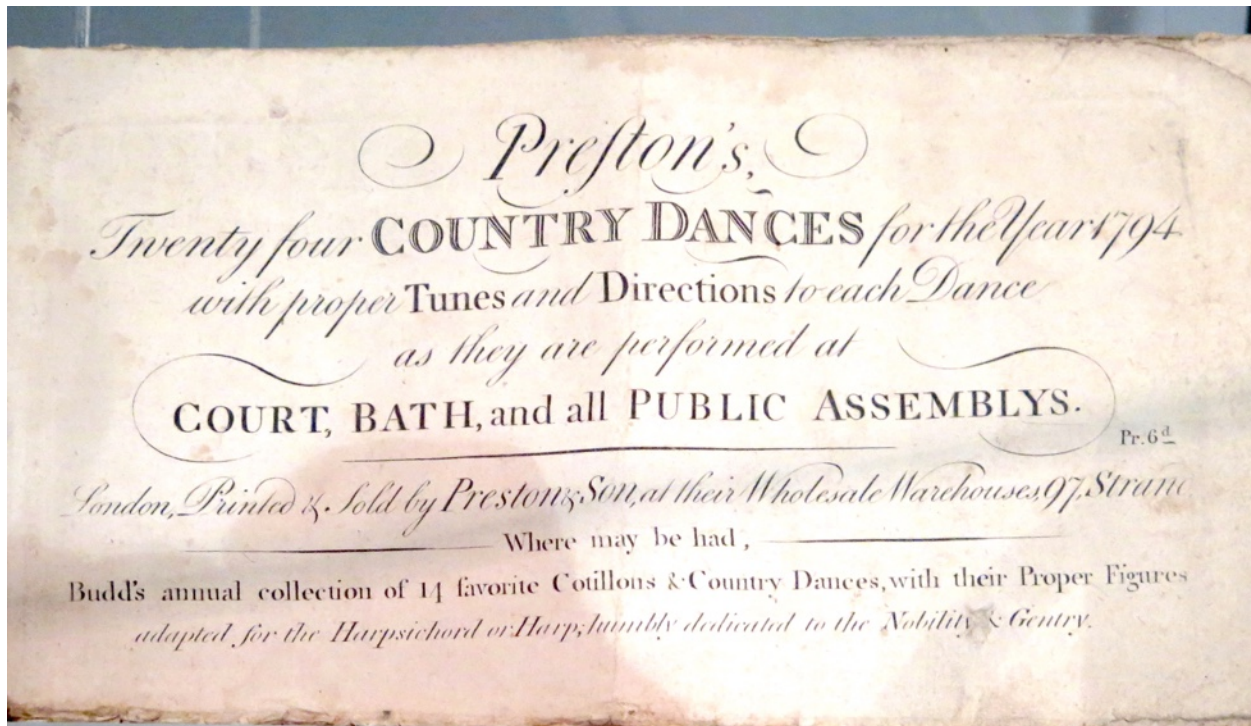 Preſton's,
Twenty four COUNTRY DANCES for the Year 1794
with proper Tunes and Directions to each Dance
as they are performed at
COURT, BATH, and all PUBLIC ASSEMBLYS.
Pr. 6d
London, Printed & Sold by Preston & Son, at their Wholesale Warehouses, 97, Strand
Where may be had,
Budd's annual collection of 14 favorite Cotillons & Country Dances, with their Proper Figures
adapted for the Harpsichord or Harp; humbly dedicated to the Nobility & Gentry.